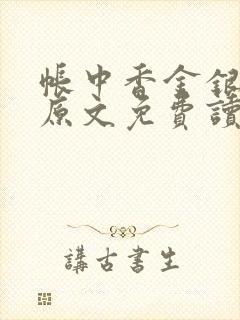 帳中香金銀
原文免費讀
講古書生